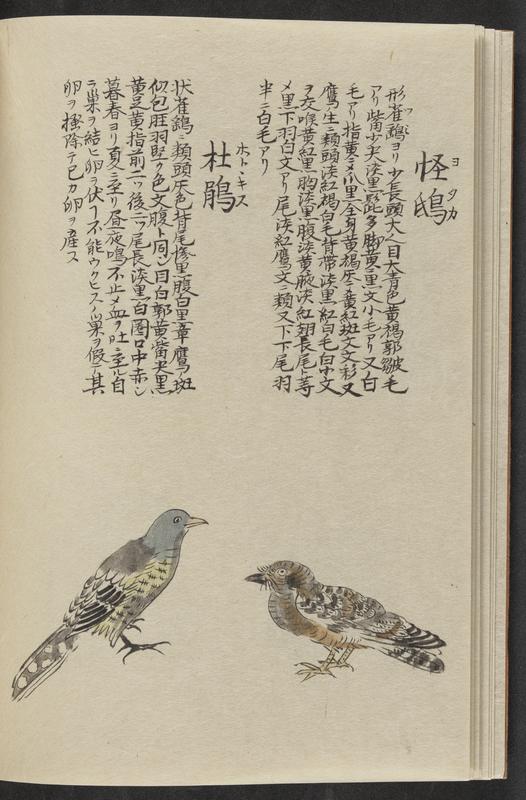 怪鴟
ヨタカ
形雀鷂ヨリ少長頭大ヘ目大青色黄褐郭皺毛
アリ觜少尖淡黒髭多脚黄ニ黒文小毛アリ又白
毛アリ指黄ニメ爪黒全身黄褐灰ニ黄紅斑文文彩又
鷹生ニ類頭淡紅褐白毛背帯淡黒紅白毛白出文
ヲ交喉黄紅黒胸淡黒腹淡黄腋淡紅翅長尾ト等
メ黒下羽白文アリ尾淡紅鷹文ニ類又下下尾羽
半ニ白毛アリ
杜鵑
ホトヽキス
状雀鷂ニ類頭灰色背尾惨黒腹白黒章鷹ノ斑
似包旺羽堅ク色文腹ト同シ目白郭黄觜尖黒
黄足黄指前二ツ後二ツ尾長淡黒白圏口中赤シ
暮春ヨリ夏ニ至リ昼夜鳴不止メ血ヲ吐ニ至ル自
ラ巣ヲ結ヒ卵ヲ伏フ不能ウクヒスノ巣ヲ假テ其
卵ヲ掻除テ己カ卵ヲ產ス